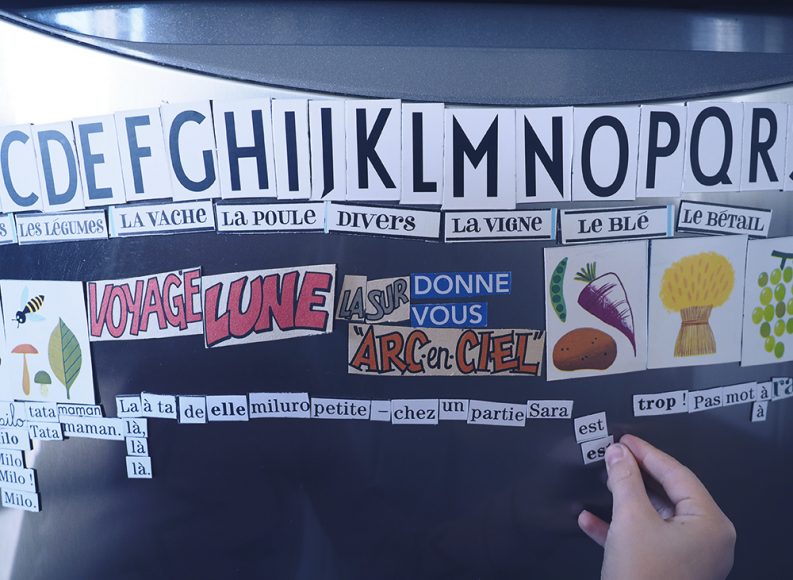 C D E F G H I J K L M N O P Q R
LES LÉGUMES LA VACHE LA POULE DIVERS LA VIGNE LE BLÉ LE BÉTAIL
VOYAGE LUNE LA SUR DONNE
VOUS
"ARC-en-CIEL"
tata maman La à ta de elle miluro petite – chez un partie Sara est trop ! Pas mot à
Milo Tata maman là es à
Milo là
Milo ! là.
Milo.